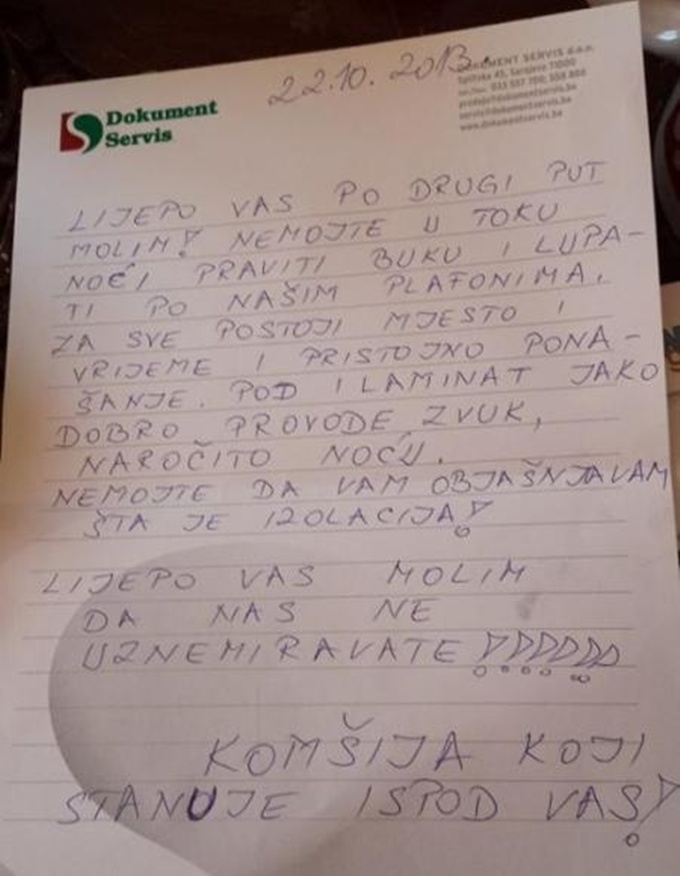 22.10. 2013.
Dokument
Servis
DOKUMENT SERVIS d.o.o.
Splitska 45, Sarajevo 71000
www.dokumentservis.ba
LIJEPO VAS PO DRUGI PUT
MOLIM! NEMOJTE U TOKU
NOĆI PRAVITI BUKU I LUPA-
TI PO NAŠIM PLAFONIMA.
ZA SVE POSTOJI MJESTO I
VRIJEME I PRISTOJNO PONA-
ŠANJE. POD I LAMINAT JAKO
DOBRO PROVODE ZVUK,
NAROČITO NOĆU.
NEMOJTE DA VAM OBJAŠNJAVAM
ŠTA JE IZOLACIJA!
LIJEPO VAS MOLIM
DA NAS NE
UZNEMIRAVATE !!!!!!
KOMŠIJA KOJI
STANUJE ISPOD VAS!